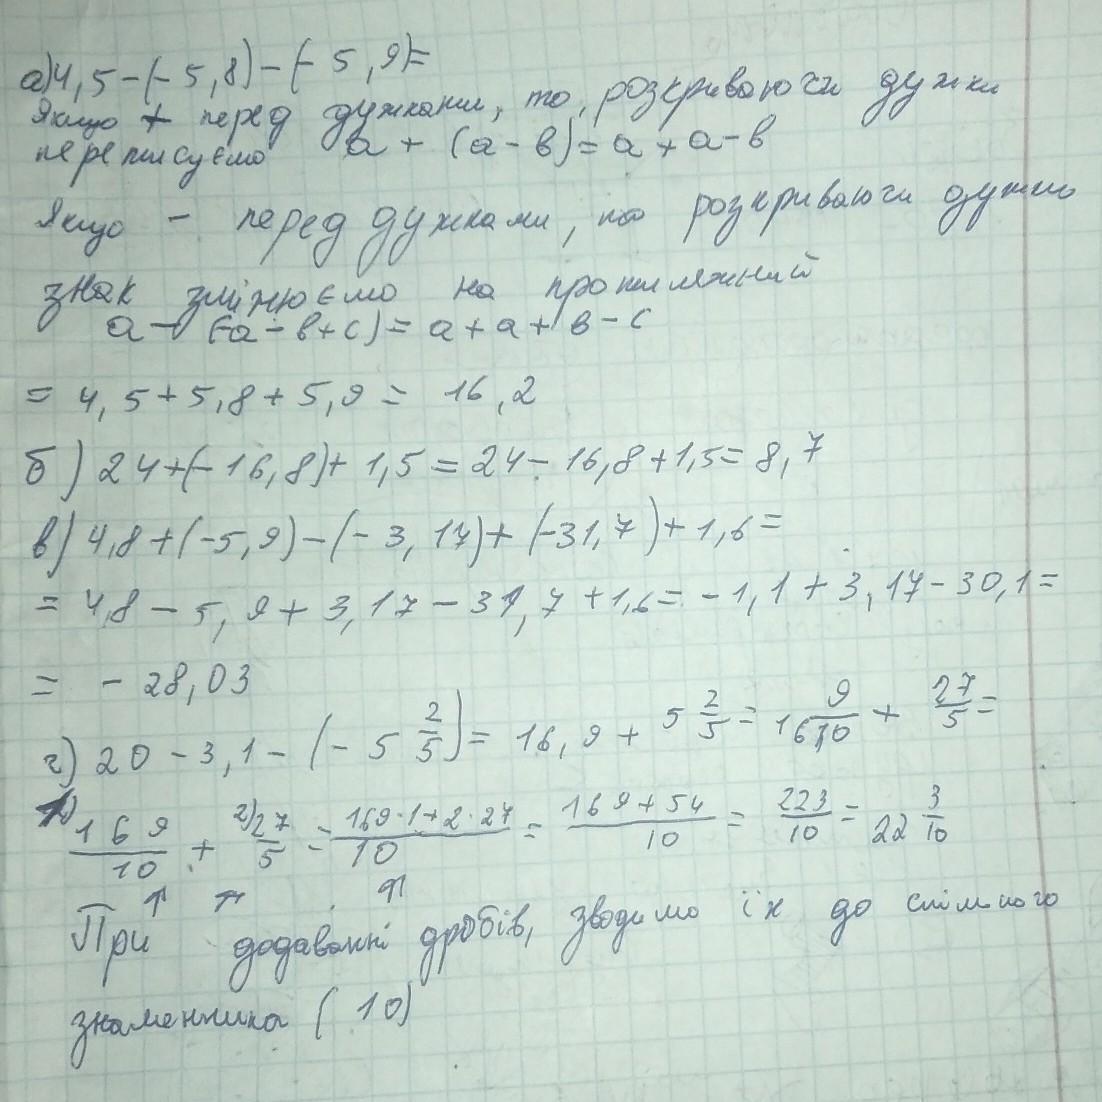 а) 4,5-(-5,8)-(-5,9)=
Якщо + перед дужками, то, розкриваючи дужки
переписуємо a + (a - в) = a + a - в
Якщо - перед дужками, то розкриваючи дужки
знак змінюємо на протилежний
a - (-a - в + c) = a + a + в - c
= 4,5 + 5,8 + 5,9 = 16,2
б) 24+(-16,8)+1,5 = 24-16,8+1,5 = 8,7
в) 4,8+(-5,9)-(-3,17)+(-31,7)+1,6=
= 4,8 - 5,9 + 3,17 - 31,7 + 1,6 = -1,1 + 3,17 - 30,1 =
= - 28,03
г) 20 - 3,1 - (-5 2/5) = 16,9 + 5 2/5 = 16 9/10 + 27/5 =
1) 169/10 + 2) 27/5 = 169·1+2·27/10 = 169+54/10 = 223/10 = 22 3/10
При додаванні дробів, зводимо їх до спільного
знаменника (10)